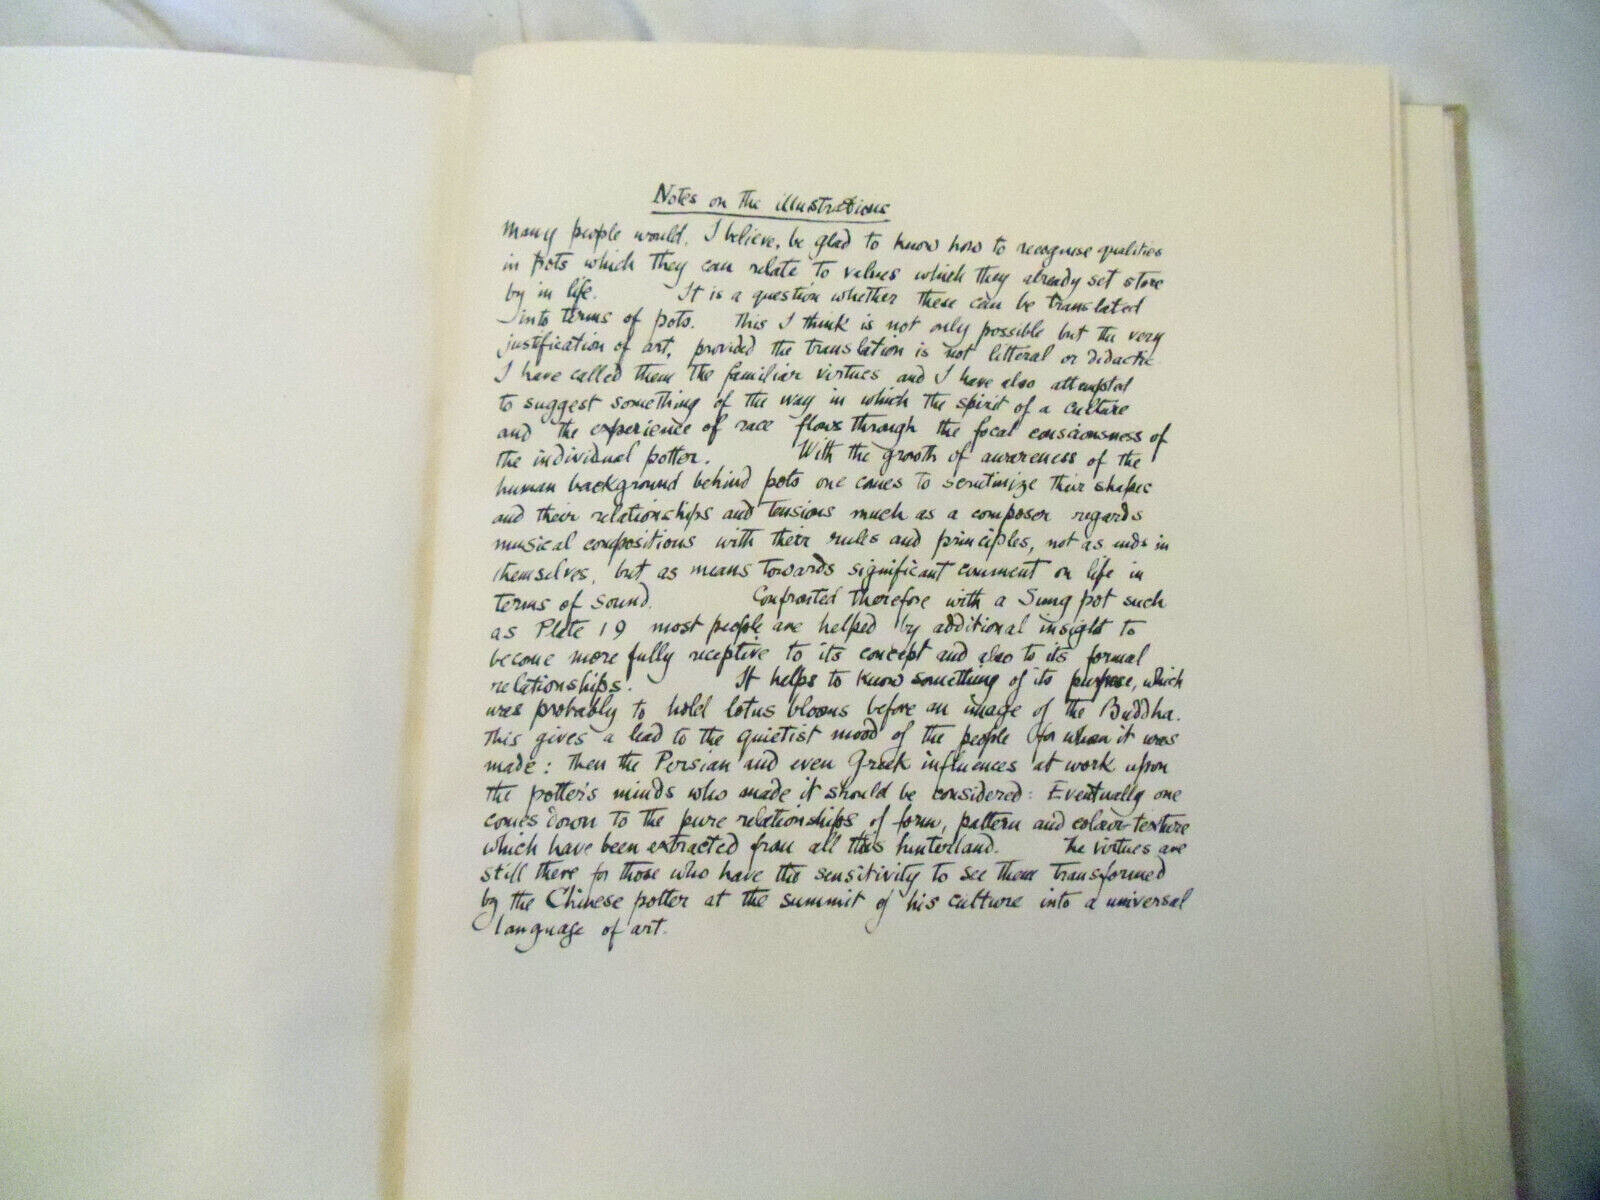 Notes on the illustrations
Many people would, I believe, be glad to know how to recognise qualities
in pots which they can relate to values which they already set store
by in life. It is a question whether these can be translated
into terms of pots. This I think is not only possible but the very
justification of art, provided the translation is not litteral or didactic
I have called them the familiar virtues and I have also attempted
to suggest something of the way in which the spirit of a culture
and the experience of race flows through the focal consciousness of
the individual potter. With the growth of awareness of the
human background behind pots one comes to scrutinize their shapes
and their relationships and tensions much as a composer regards
musical compositions with their rules and principles, not as ends in
themselves, but as means towards significant comment on life in
terms of sound. Confronted therefore with a Sung pot such
as Plate 19 most people are helped by additional insight to
become more fully receptive to its concept and also to its formal
relationships. It helps to know something of its purpose, which
was probably to hold lotus blooms before an image of the Buddha.
This gives a lead to the quietist mood of the people for whom it was
made: then the Persian and even Greek influences at work upon
the potter's minds who made it should be considered: Eventually one
comes down to the pure relationships of form, pattern and colour-texture
which have been extracted from all this hinterland. The virtues are
still there for those who have the sensitivity to see them transformed
by the Chinese potter at the summit of his culture into a universal
language of art.